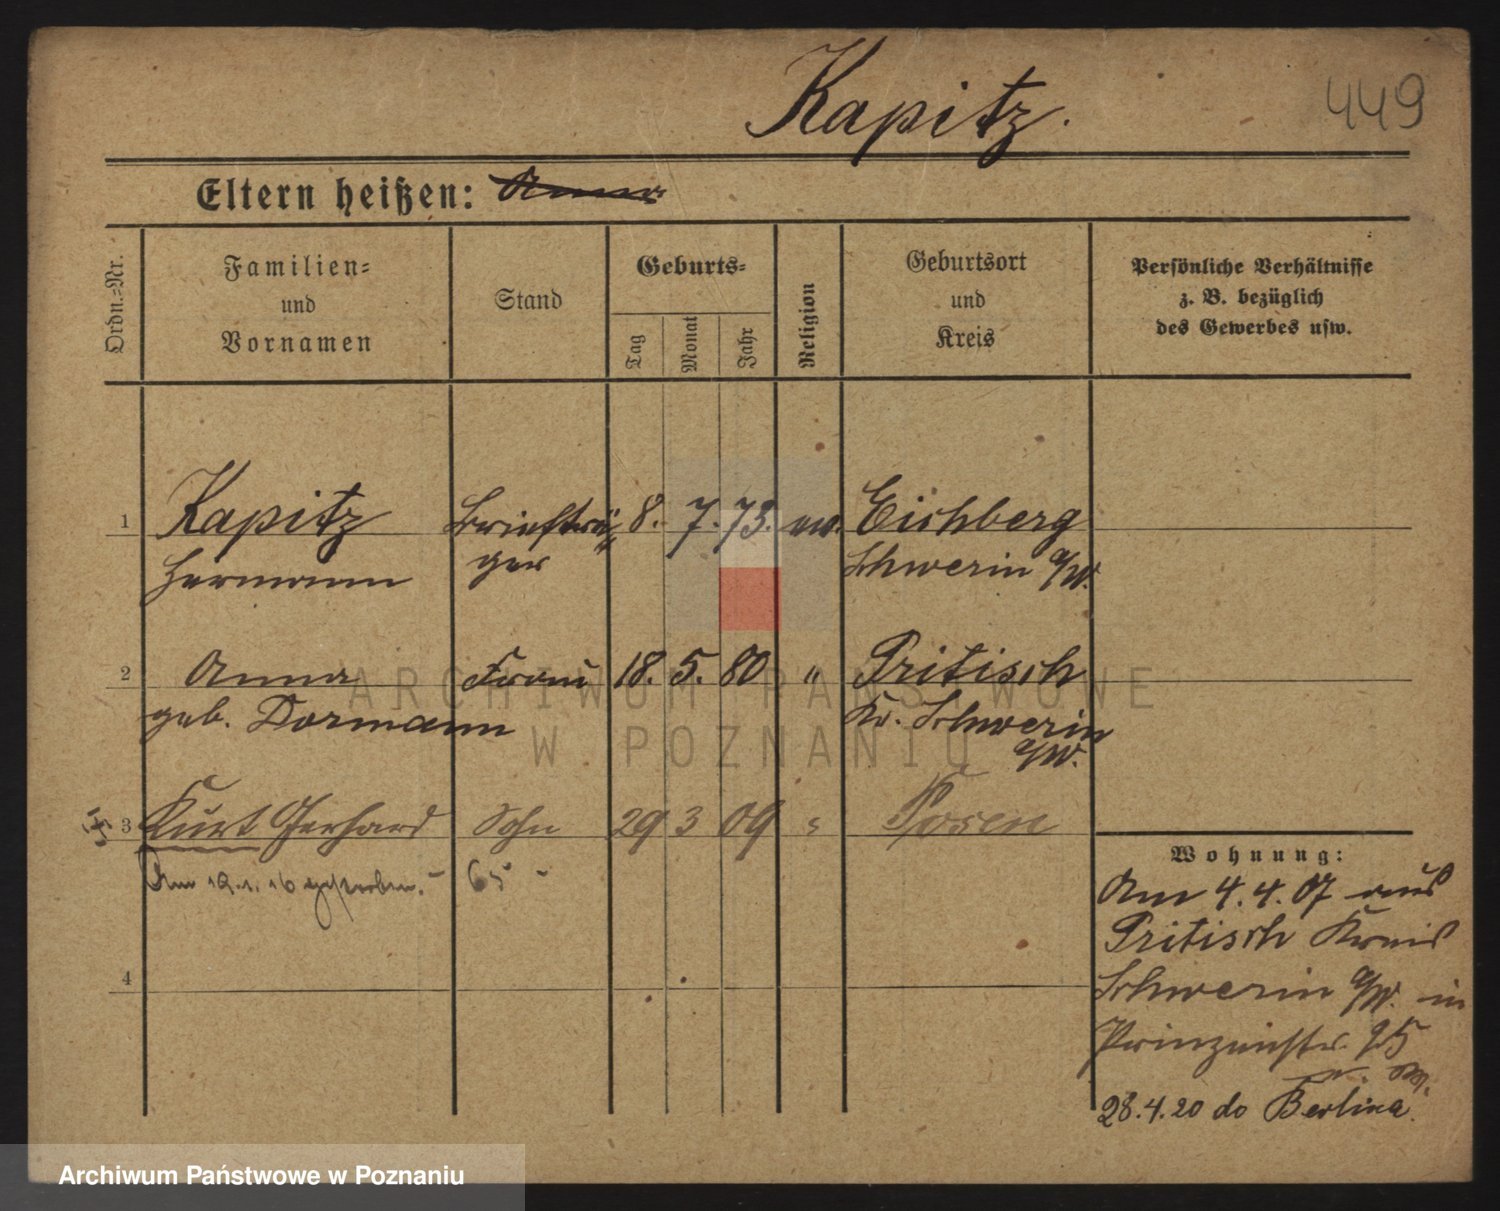 Kapitz.
449
Eltern heißen: Anna
Ordn.-Nr.
Familien- und Vornamen
Stand
Geburts-
Tag
Monat
Jahr
Religion
Geburtsort und Kreis
Persönliche Verhältnisse
z. B. bezüglich
des Gewerbes usw.
1 Kapitz Briefträ- 8. 7. 73. ev. Eichberg
Hermann ger Schwerin a/W.
2 Anna Frau 18. 5. 80 " Pritisch
geb. Dormann Kr. Schwerin
a/W.
3 Kurt Gerhard Sohn 29 3 09 " Posen
Am 19.1.16 gestorben. 65
4
Wohnung:
Am 4.4.07 aus
Pritisch Kreis
Schwerin a/W. in
Prinzenstr. 25
28.4.20 do Berlina.
ARCHIWUM PAŃSTWOWE
W POZNANIU
Archiwum Państwowe w Poznaniu